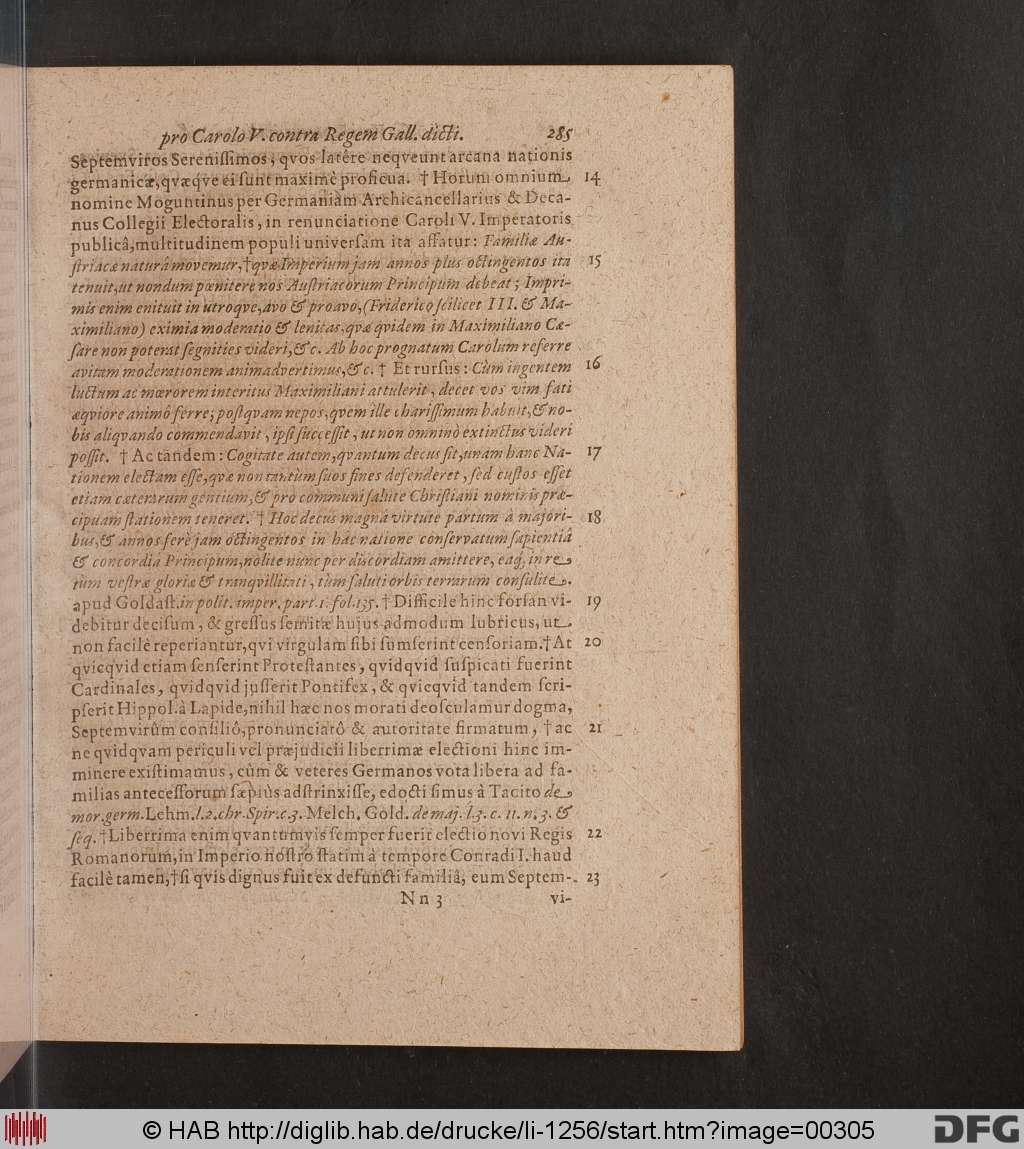 pro Carolo V. contra Regem Gall. dicti. 285
Septemviros Serenissimos, qvos latêre neqveunt arcana nationis
germanicæ, qvæqve ei sunt maximè proficua. † Horum omnium 14
nomine Moguntinus per Germaniam Archicancellarius & Deca-
nus Collegii Electoralis, in renunciatione Caroli V. Imperatoris
publicâ, multitudinem populi universam ita affatur: Familiæ Au-
striacæ naturâ movemur, † qvæ Imperium jam annos plus octingentos ita 15
tenuit, ut nondum pœnitere nos Austriacorum Principum debeat; Impri-
mis enim enituit in utroqve, avo & proavo, (Friderico scilicet III. & Ma-
ximiliano) eximia moderatio & lenitas, qvæ qvidem in Maximiliano Cæ-
sare non poterat segnities videri, &c. Ab hoc prognatum Carolum referre
avitam moderationem animadvertimus, &c. † Et rursus: Cùm ingentem 16
luctum ac mœrorem interitus Maximiliani attulerit, decet vos vim fati
æqviore animô ferre; postqvam nepos, qvem ille charissimum habuit, & no-
bis aliqvando commendavit, ipsi successit, ut non omninò extinctus videri
possit. † Ac tandem: Cogitate autem, qvantum decus sit, unam hanc Na- 17
tionem electam esse, qvæ non tantùm suos fines defenderet, sed custos esset
etiam cæterarum gentium, & pro communi salute Christiani nominis præ-
cipuam stationem teneret. † Hoc decus magnâ virtute partum à majori- 18
bus, & annos ferè jam octingentos in hâc natione conservatum sapientiâ
& concordiâ Principum, nolite nunc per discordiam amittere, eaq́; in re
tùm vestræ gloriæ & tranqvillitati, tùm saluti orbis terrarum consulite.
apud Goldast. in polit. imper. part. 1. fol. 135. † Difficile hinc forsan vi- 19
debitur decisum, & gressus semitæ hujus admodum lubricus, ut
non facilè reperiantur, qvi virgulam sibi sumserint censoriam. † At 20
qvicqvid etiam senserint Protestantes, qvidqvid suspicati fuerint
Cardinales, qvidqvid jusserit Pontifex, & qvicqvid tandem scri-
pserit Hippol. à Lapide, nihil hæc nos morati deosculamur dogma,
Septemvirûm consiliô, pronunciatô & autoritate firmatum, † ac 21
ne qvidqvam periculi vel præjudicii liberrimæ electioni hinc im-
minere existimamus, cûm & veteres Germanos vota libera ad fa-
milias antecessorum sæpiùs adstrinxisse, edocti simus à Tacito de
mor. germ. Lehm. l. 2. chr. Spir. c. 3. Melch. Gold. de maj. l. 3. c. 11. n. 3. &
seq. † Liberrima enim qvantumvis semper fuerit electio novi Regis 22
Romanorum, in Imperio nostro statim à tempore Conradi I. haud
facilè tamen, † si qvis dignus fuit ex defuncti familiâ, eum Septem- 23
Nn 3 vi-
© HAB http://diglib.hab.de/drucke/li-1256/start.htm?image=00305
DFG